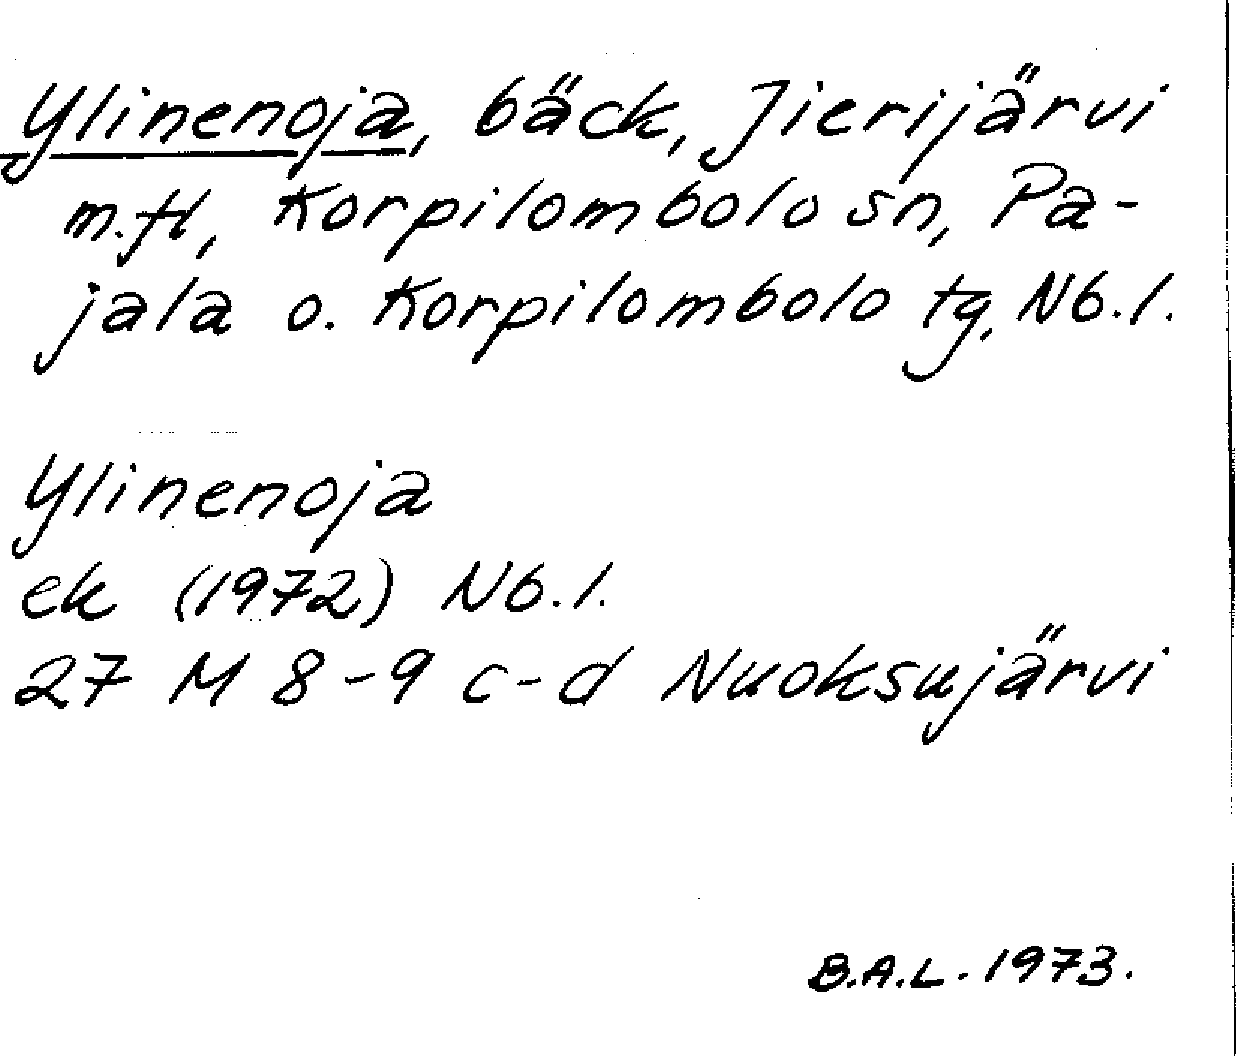 Ylinenoja, bäck, Jierijärvi
m.fl, Korpilombolo sn, Pa-
jala o. Korpilombolo tg. Nb. l.
Ylinenoja
ek (1972) Nb. l.
27 M 8-9 c-d Nuoksujärvi
B.A.L. 1973.